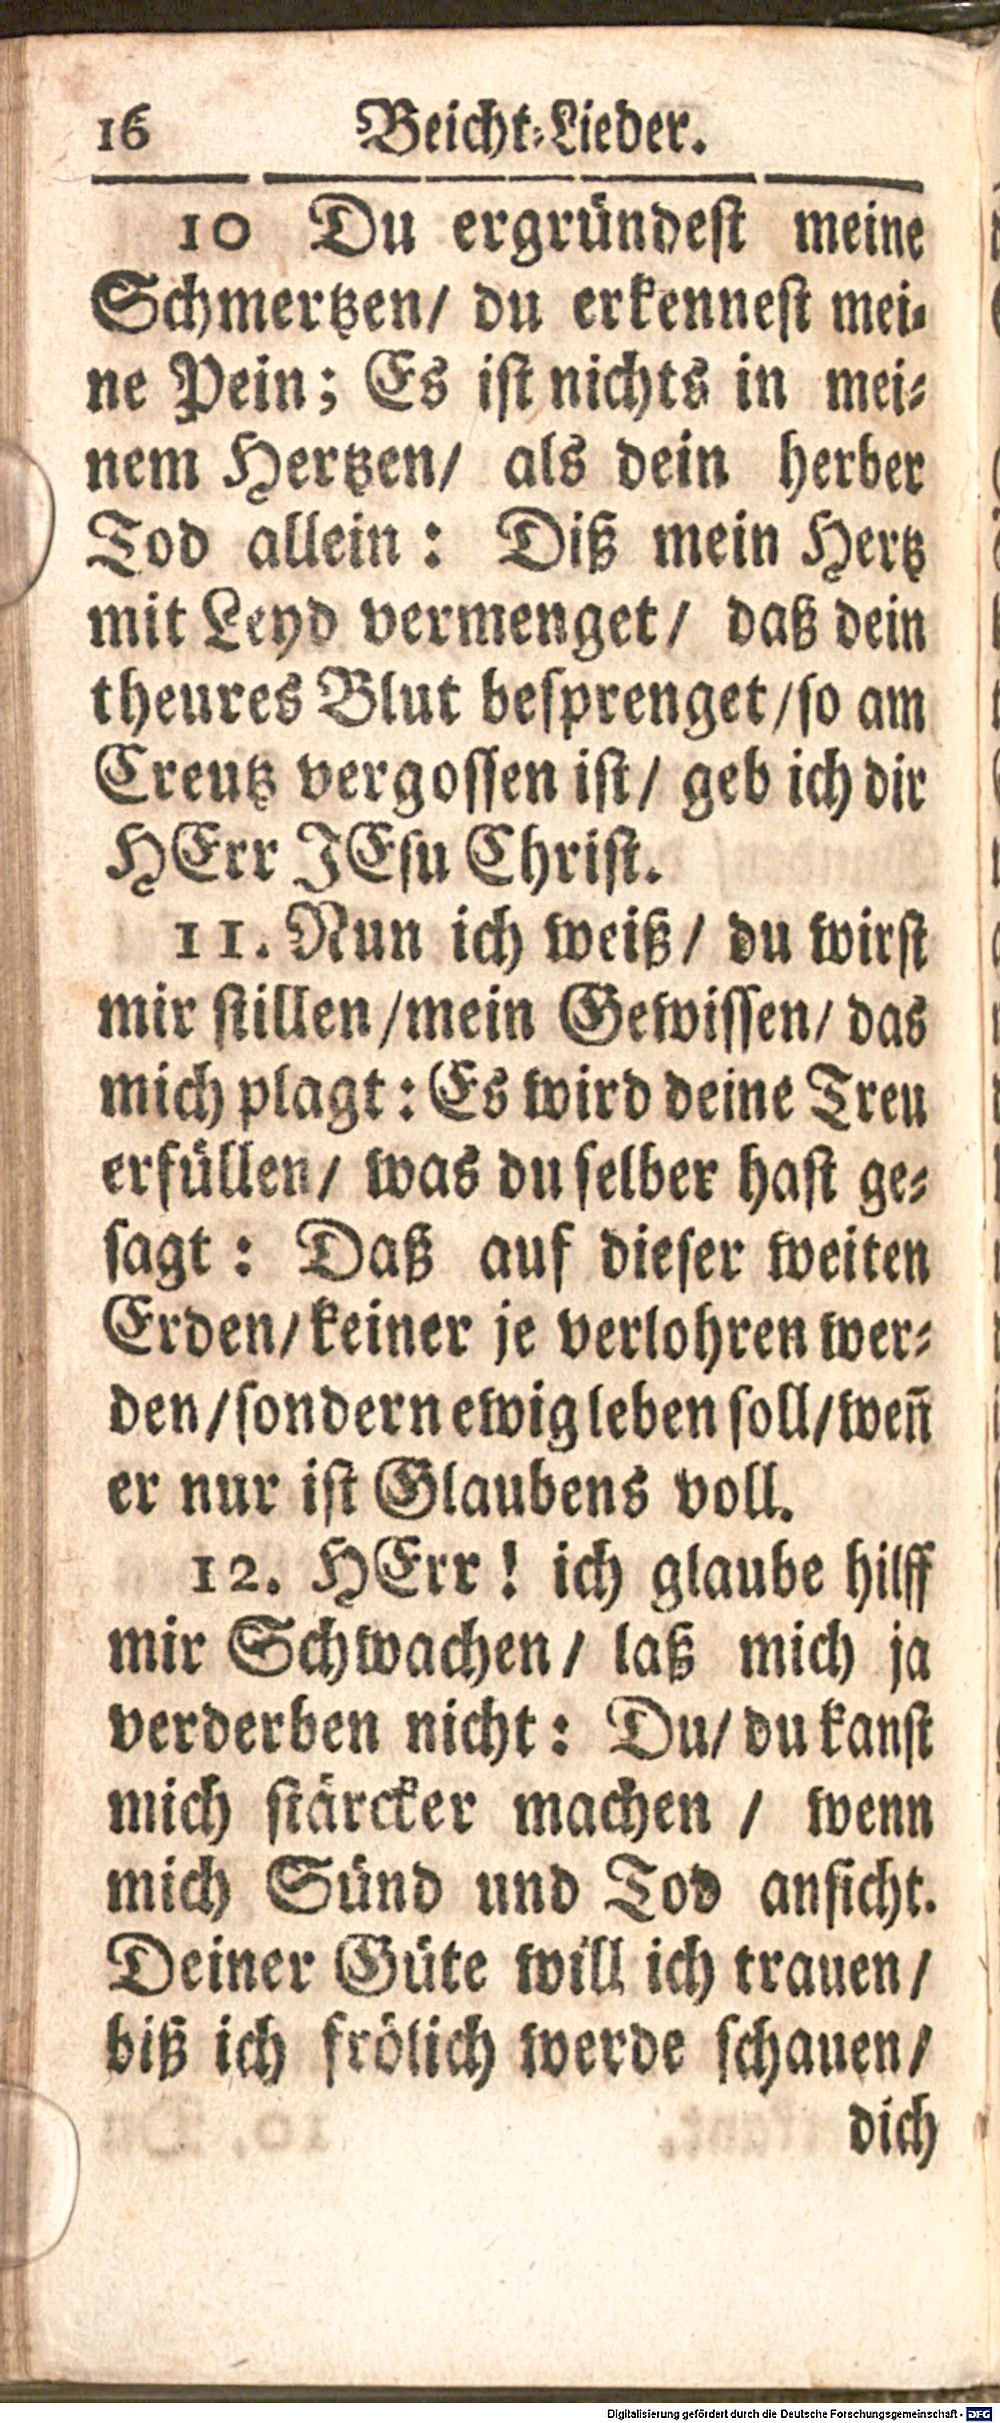 16 Beicht-Lieder.
10 Du ergründest meine
Schmertzen/ du erkennest mei-
ne Pein; Es ist nichts in mei-
nem Hertzen/ als dein herber
Tod allein: Diß mein Hertz
mit Leyd vermenget/ daß dein
theures Blut besprenget/so am
Creutz vergossen ist/ geb ich dir
HErr JEsu Christ.
11. Nun ich weiß/ du wirst
mir stillen/mein Gewissen/ das
mich plagt: Es wird deine Treu
erfüllen/ was du selber hast ge-
sagt: Daß auf dieser weiten
Erden/keiner je verlohren wer-
den/sondern ewig leben soll/weñ
er nur ist Glaubens voll.
12. HErr! ich glaube hilff
mir Schwachen/ laß mich ja
verderben nicht: Du/ du kanst
mich stärcker machen / wenn
mich Sünd und Tod anficht.
Deiner Güte will ich trauen/
biß ich frölich werde schauen/
dich
Digitalisierung gefördert durch die Deutsche Forschungsgemeinschaft - DFG